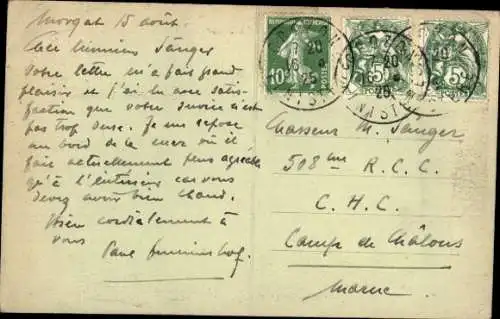 Morgat 15 août.
Cher Monsieur Sänger
Votre lettre m'a fait grand
plaisir et j'ai lu avec satis-
faction que votre service n'est
pas trop dur. Je me repose
au bord de la mer où il
fait actuellement plus agréable
qu'à l'intérieur car vous
devez avoir bien chaud.
Bien cordialement à
vous
Paul
10c
5c
5c
20
25
Chasseur M. Sänger
508ème R. C. C.
C. H. C.
Camp de Châlons
Marne